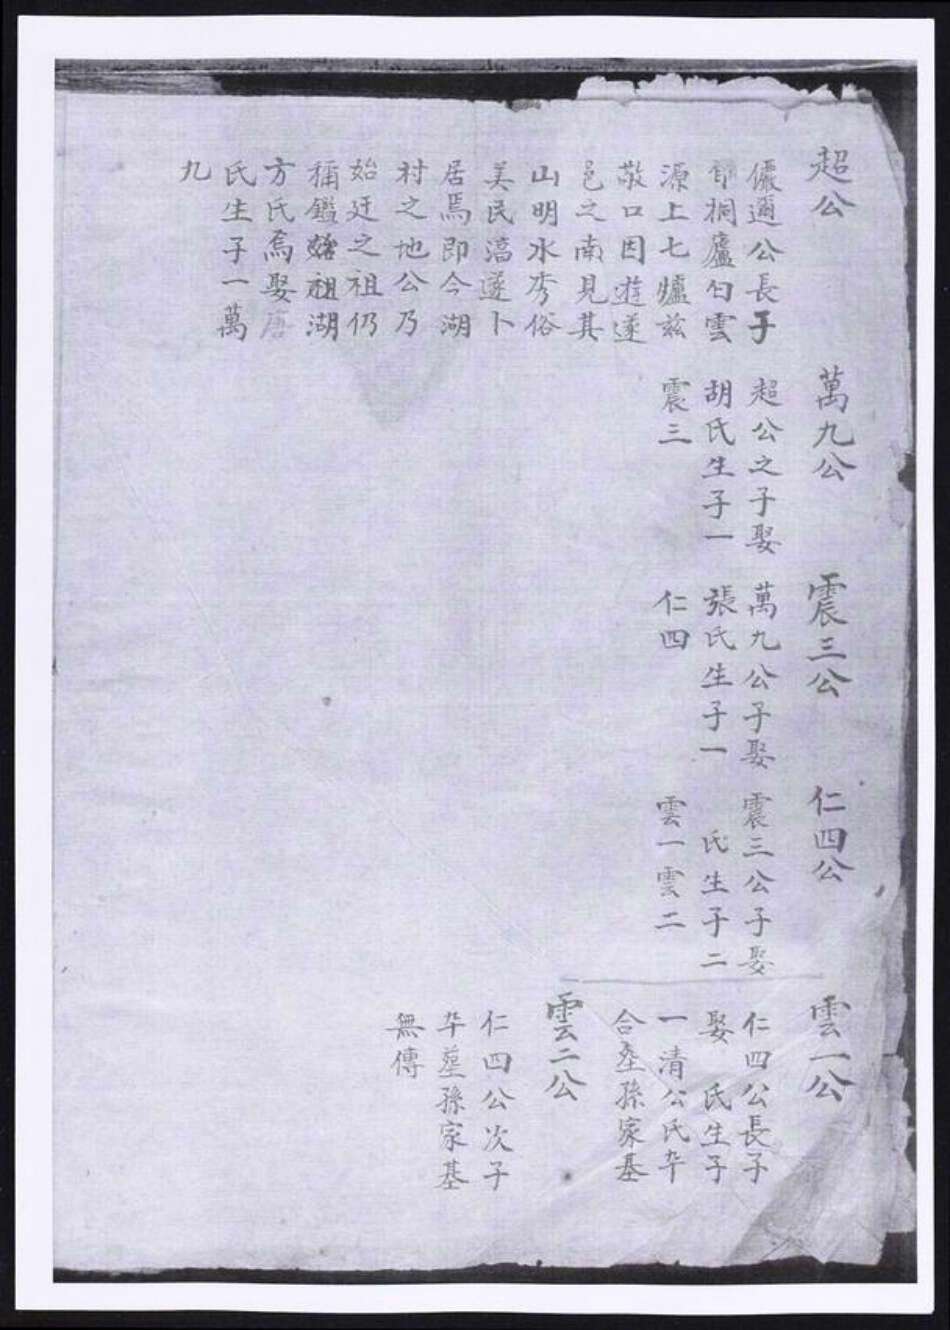 超公
儼邇公長子
卽桐廬白雲
源上七爐茲
敬口因遊遂
邑之南見其
山明水秀俗
美民淳遂卜
居焉即今湖
村之地公乃
始迁之祖仍
稱鑑始祖湖
方氏焉娶唐
氏生子一萬
九
萬九公
超公之子娶
胡氏生子一
震三
震三公
萬九公子娶
張氏生子一
仁四
仁四公
震三公子娶
氏生子二
雲一雲二
雲一公
仁四公長子
娶 氏生子
一清公氏卒
合塟孫家基
雲二公
仁四公次子
卒塟孫家基
無傳